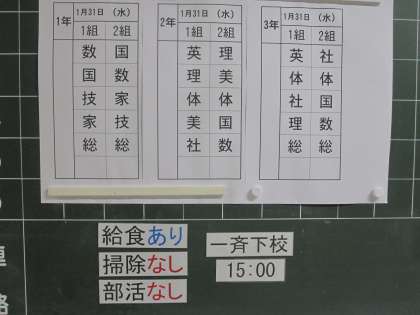 1年 1月31日 （水）
1組 2組
数 国
国 数
技 家
家 技
総 総
2年 1月31日 （水）
1組 2組
英 理
理 美
体 体
美 国
社 数
3年 1月31日 （水）
1組 2組
英 社
体 体
社 国
理 数
総 総
給食あり
掃除なし
部活なし
一斉下校
15:00